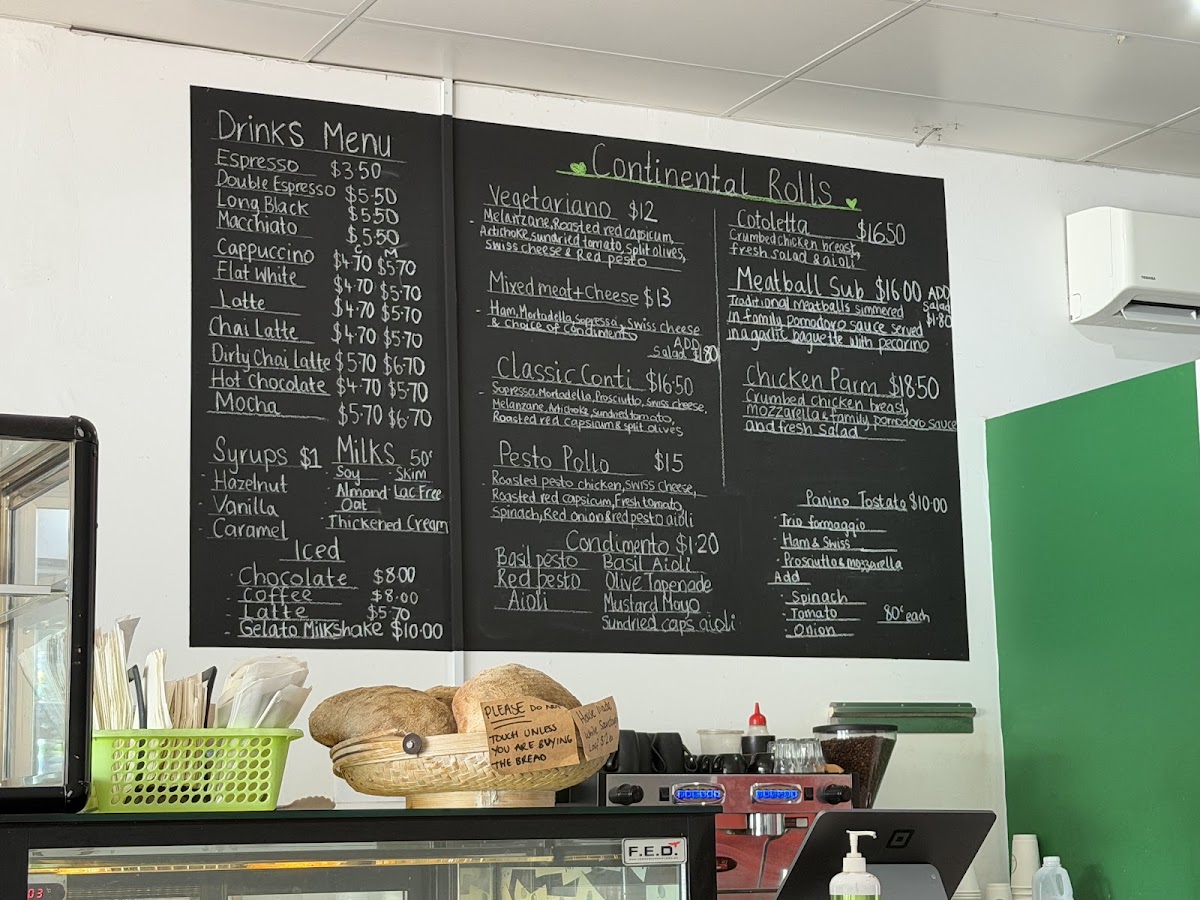 Drinks Menu
Espresso $3.50
Double Espresso $5.50
Long Black $5.50
Macchiato $5.50
C M
Cappuccino $4.70 $5.70
Flat White $4.70 $5.70
Latte $4.70 $5.70
Chai Latte $4.70 $5.70
Dirty Chai Latte $5.70 $6.70
Hot Chocolate $4.70 $5.70
Mocha $5.70 $6.70
Syrups $1
- Hazelnut
- Vanilla
- Caramel
Milks 50c
Soy - Skim
Almond Lac Free
Oat
- Thickened Cream
Iced
- Chocolate $8.00
- Coffee $8.00
- Latte $5.70
- Gelato Milkshake $10.00
Continental Rolls
Vegetariano $12
- Melanzane, Roasted red capsicum,
Artichoke, sundried tomato, split olives,
Swiss cheese & Red pesto
Mixed meat + Cheese $13
- Ham, Mortadella, Sopressa, Swiss cheese
& choice of condiments
ADD
Salad $1.80
Classic Conti $16.50
- Sopressa, Mortadella, Prosciutto, Swiss cheese,
Melanzane, Artichoke, sundried tomato,
Roasted red capsicum & split olives
Pesto Pollo $15
- Roasted pesto chicken, swiss cheese,
Roasted red capsicum, Fresh tomato,
Spinach, Red onion & red pesto aioli
Condimento $1.20
Basil pesto
Red pesto
Aioli
Basil Aioli
Olive Tapenade
Mustard Mayo
Sundried caps aioli
Cotoletta $16.50
Crumbed chicken breast,
fresh salad & aioli
Meatball Sub $16.00 ADD
Salad
$1.80
Traditional meatballs simmered
in family pomodoro sauce served
in a garlic baguette with pecorino
Chicken Parm $18.50
Crumbed chicken breast,
mozzarella & family pomodoro sauce
and fresh salad
Panino Tostato $10.00
- Trio formaggio
- Ham & Swiss
- Prosciutto & mozzarella
Add
- Spinach
- Tomato 80c each
- Onion
TOSHIBA
PLEASE DO NOT
TOUCH UNLESS
YOU ARE BUYING
THE BREAD
F.E.D.
03